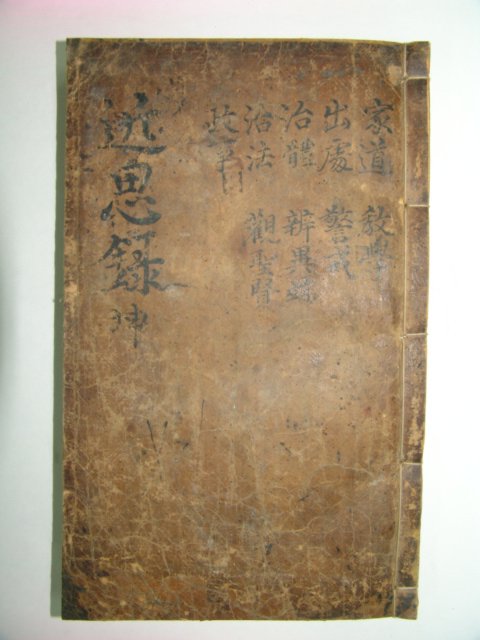 家道 教學
出處 警戒
治體 辨異端
治法 觀聖賢
政事
近思錄 坤